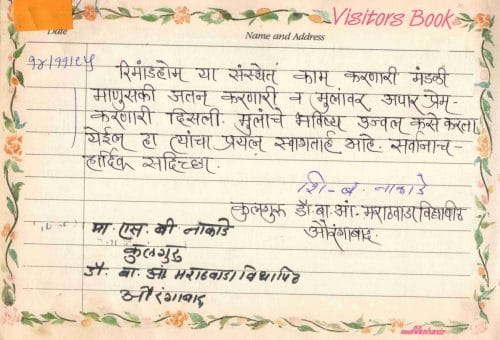 Visitors Book
Date Name and Address
१८/११/९५
रिमांडहोम या संस्थेत काम करणारी मंडळी
माणुसकी जतन करणारी व मुलांवर अपार प्रेम-
करणारी दिसली. मुलांचे भविष्य उज्वल कसे करता
येईल हा त्यांचा प्रयत्न स्वागतार्ह आहे. सर्वांनाच-
हार्दिक सदिच्छा.
शि. ब. नाकाडे
कुलगुरु डॉ. बा. आं. मराठवाडा विद्यापीठ
औरंगाबाद.
प्रा. एस. बी नाकाडे
कुलगुरु
डॅा. बा. आं मराठवाडा विद्यापिठ
औरंगाबाद